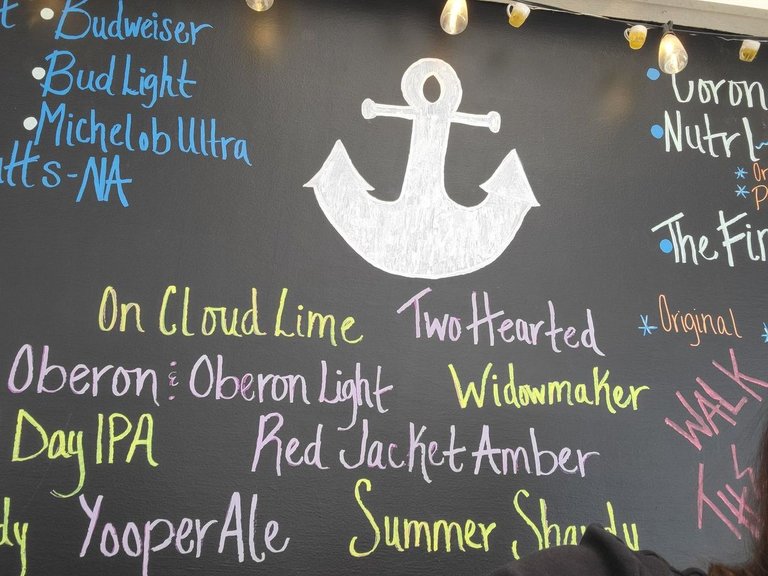 Budweiser
Bud Light
Michelob Ultra
tts-NA
Coron
Nutrl
The Fir
Original
On Cloud Lime
Two Hearted
Oberon & Oberon Light
Widowmaker
Day IPA
Red Jacket Amber
WALK
dy
Yooper Ale
Summer Shandy